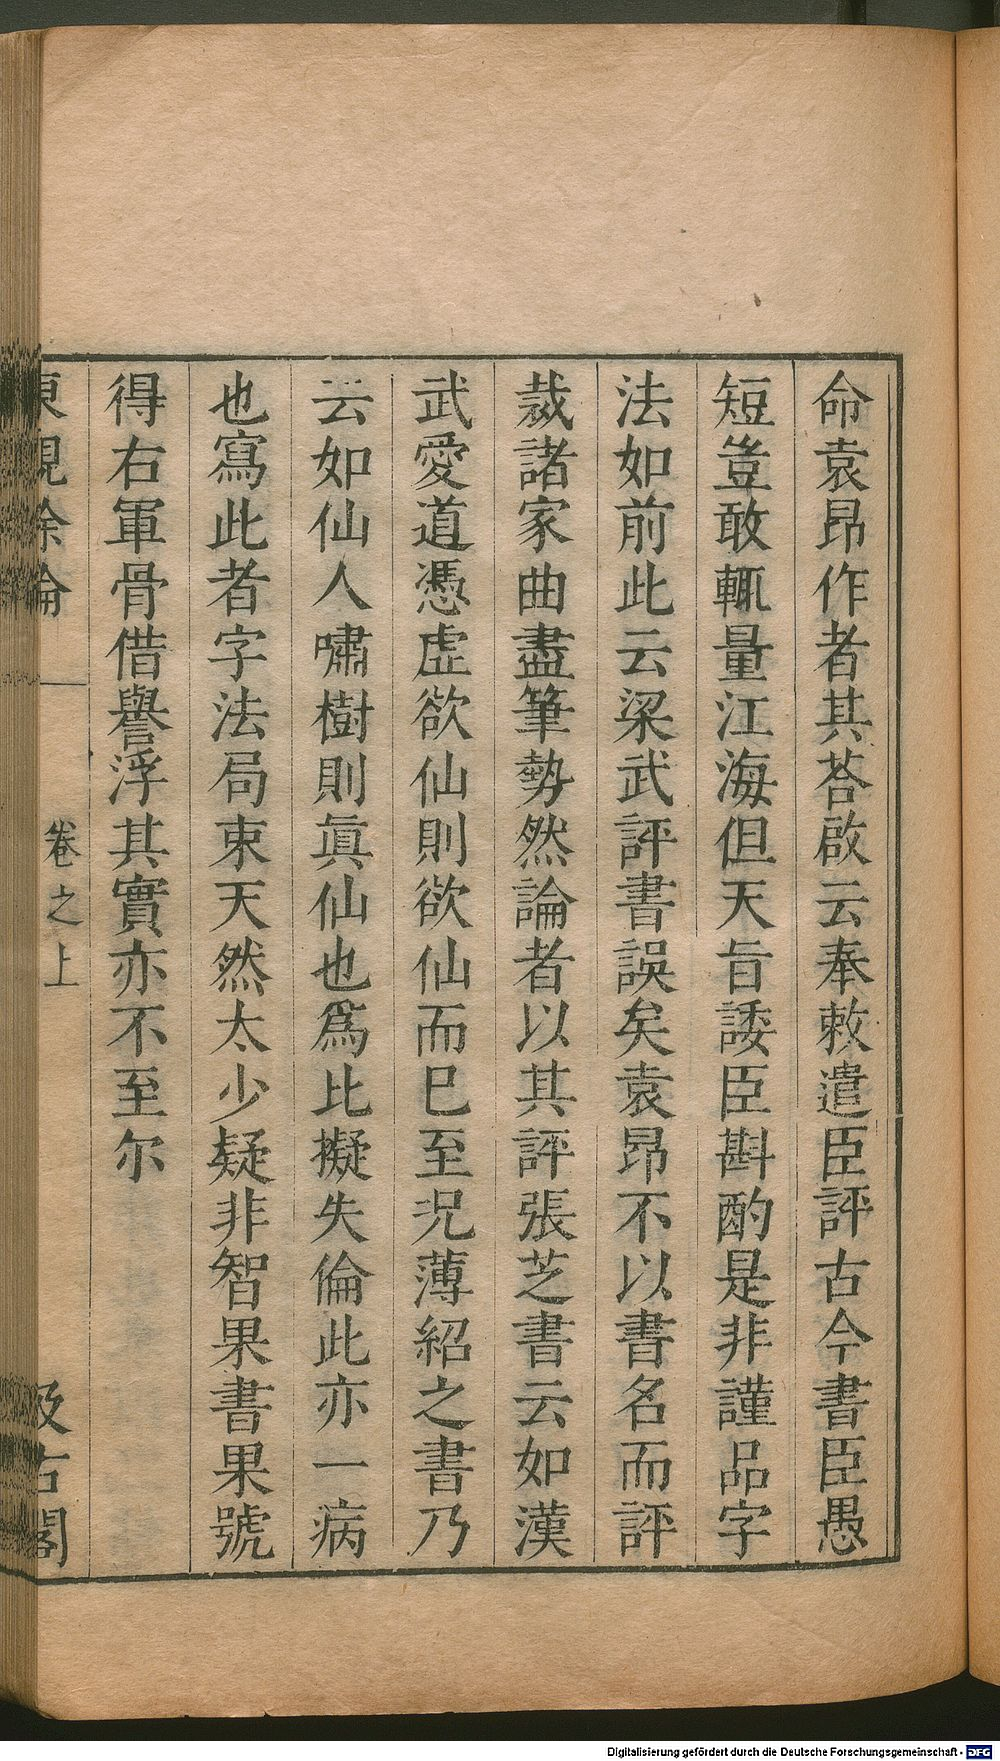 命袁昂作者其荅啟云奉敕遣臣評古今書臣愚
短豈敢輒量江海但天旨諉臣斟酌是非謹品字
法如前此云梁武評書誤矣袁昂不以書名而評
裁諸家曲盡筆勢然論者以其評張芝書云如漢
武愛道憑虛欲仙則欲仙而巳至況薄紹之書乃
云如仙人嘯樹則眞仙也爲比擬失倫此亦一病
也寫此者字法局束天然太少疑非智果書果號
得右軍骨借譽浮其實亦不至尔
東觀餘論 卷之上 汲古閣
Digitalisierung gefördert durch die Deutsche Forschungsgemeinschaft - DFG